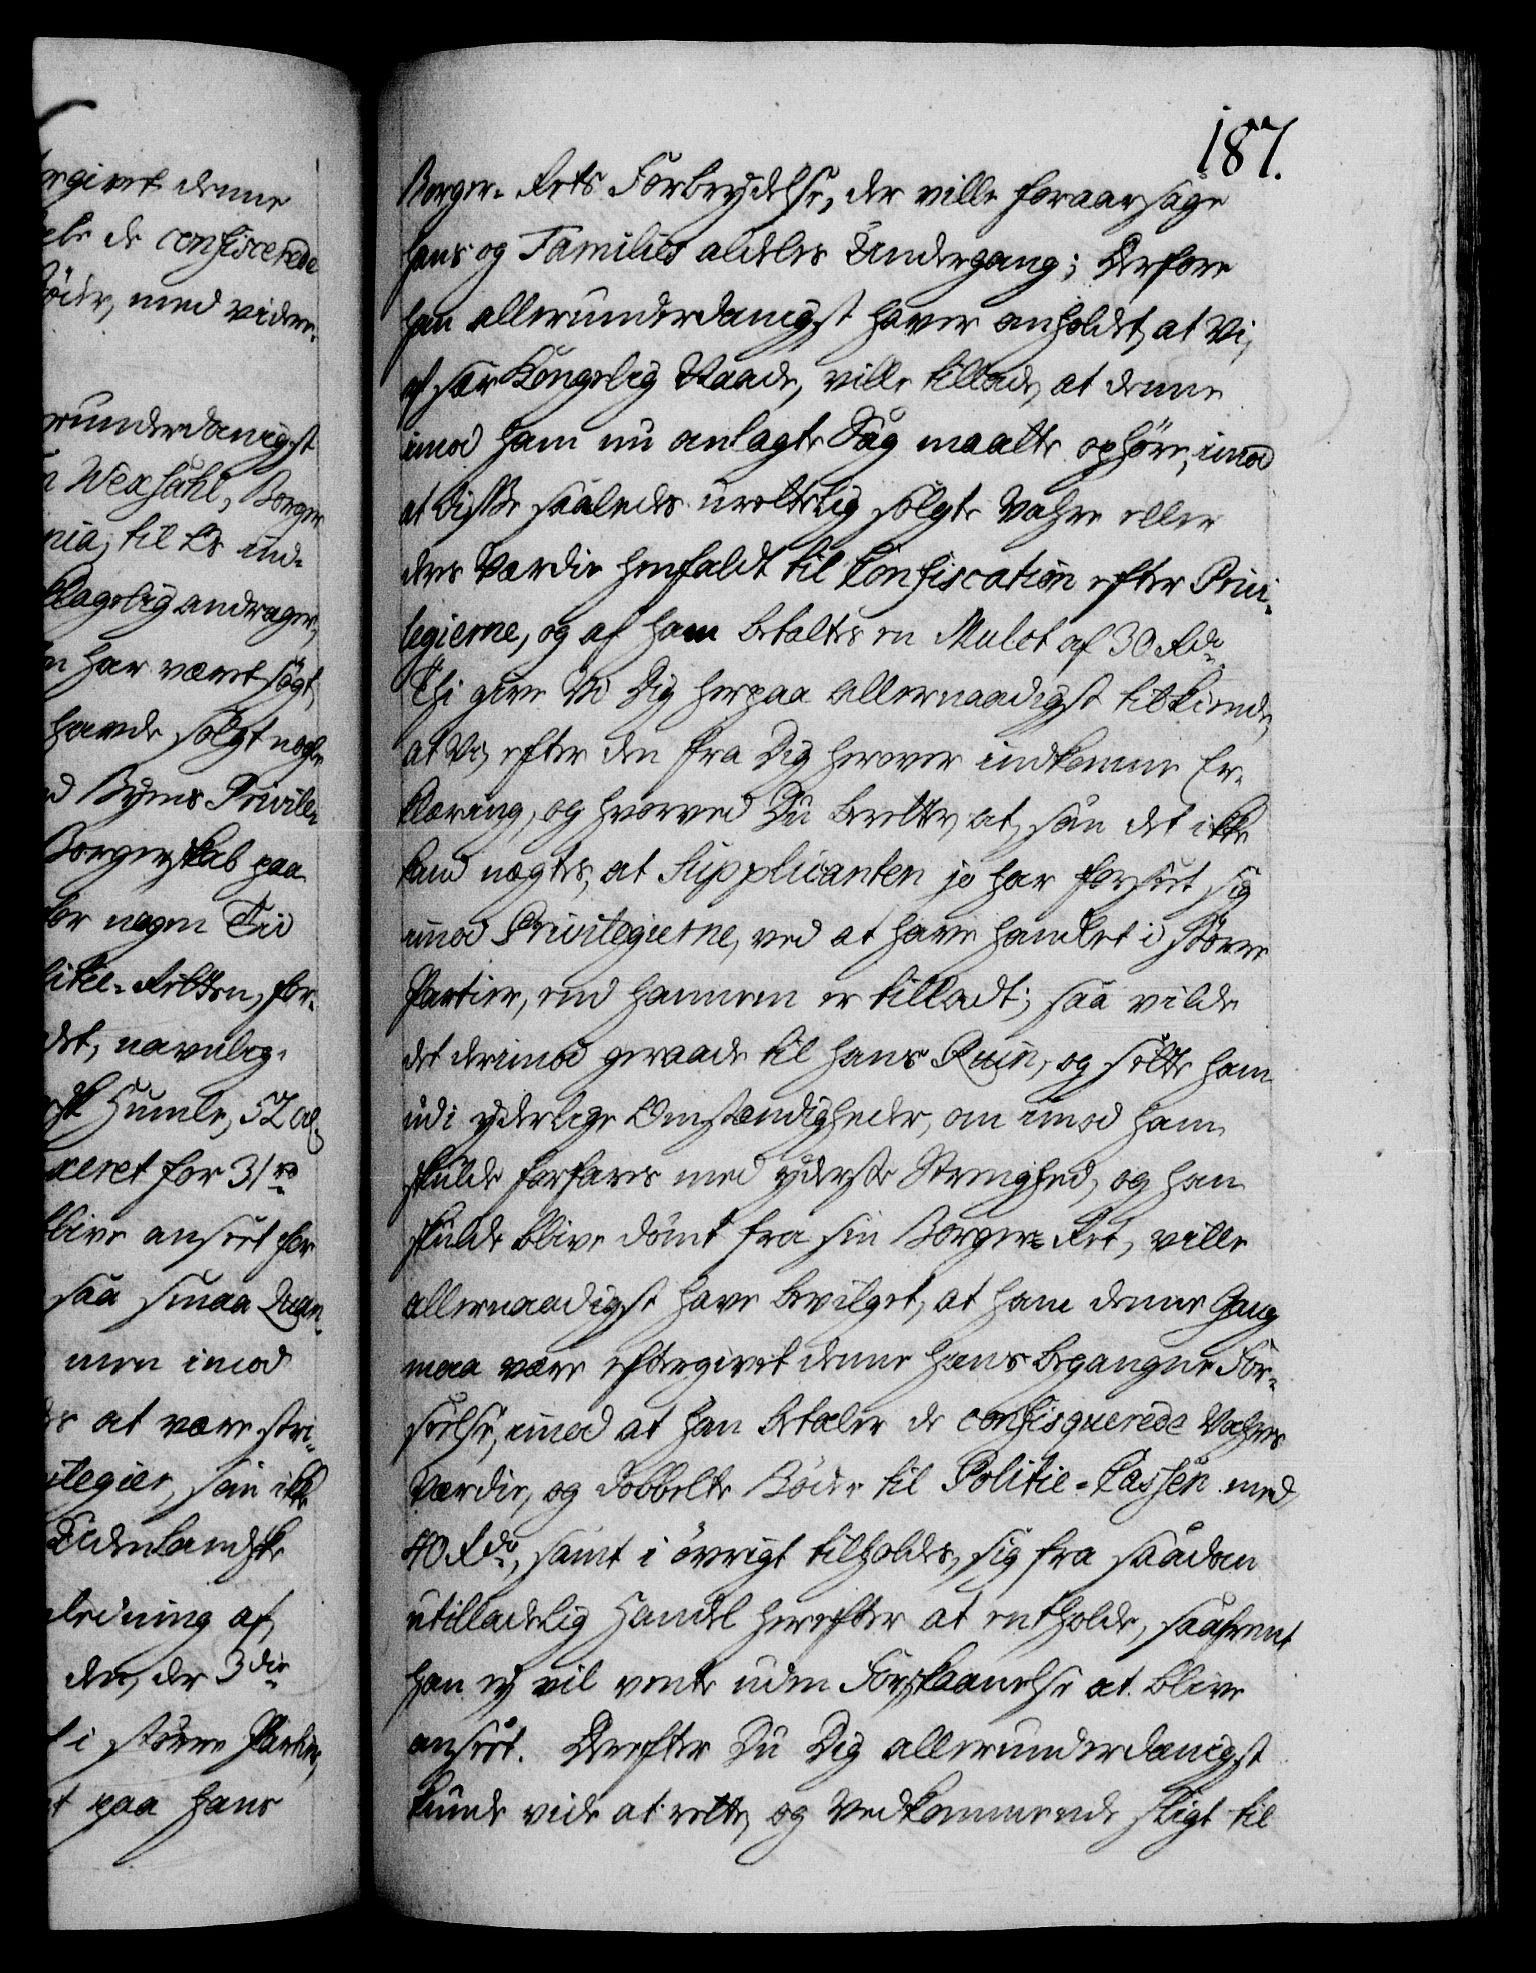 ergivet denne
de confiscerede
Böder, med videre.
erunderdanigst
Wexsahl, Borger
nia, til Os ind-
klagelig andrager,
har været sögt,
havde solgt nogle
Byens Privile-
Borgerskab paa
nogen Tid
litie-Retten, for-
navnlig
Humle, 52
xeret for 31 rd
blive anseet for
saa smaa Quan-
men imod
at være stri-
ilegier, som ikke
Udenlandske
ledning af,
den, der 3die
i större Partier,
paa hans
187.
Borger-Rets Forbrydelse, der ville foraarsage
hans og Families aldeles Undergang; Derfore
han allerunderdanigst haver anholdet, at Vi,
af sær Kongelig Naade, ville tillade, at denne
imod ham nu anlagte Sag maatte ophöre, imod
at disse saaledes uretteligen solgte Vahre eller
des Værdie henfaldt til Confiscation efter Privi-
legierne, og af ham betaltes en Mulct af 30 Rdr.
Thi give Vi Dig herpaa allernaadigst tilkiende,
at Vi, efter den fra Dig herover indkomne Er-
klæring, og hvorved Du beretter, at, som det ikke
kand nægtes, at Supplicanten jo har forseet sig
imod Privilegierne, ved at have handlet i större
Partier, end hannem er tilladt; saa vilde
det derimod geraade til hans Ruin, og sette ham
udi ynkelige Omstændigheder, om imod ham
skulde forfares med yderste Strenghed, og han
skulde blive dömt fra sin Borger-Ret, ville
allernaadigst have bevilget, at ham denne Gang
maa være eftergivet denne hans begangne For-
seelse, imod at han betaler de confisquerede Vahres
Værdie, og dobbelte Böder til Politie-Cassen med
40 Rdr., samt i övrigt tilholdes, sig fra saadan
utilladelig Handel herefter at entholde, saafremt
han ey vil vente uden Forskaanelse at blive
anseet. Derefter Du Dig allerunderdanigst
kunde vide at rette, og Vedkommende sligt til